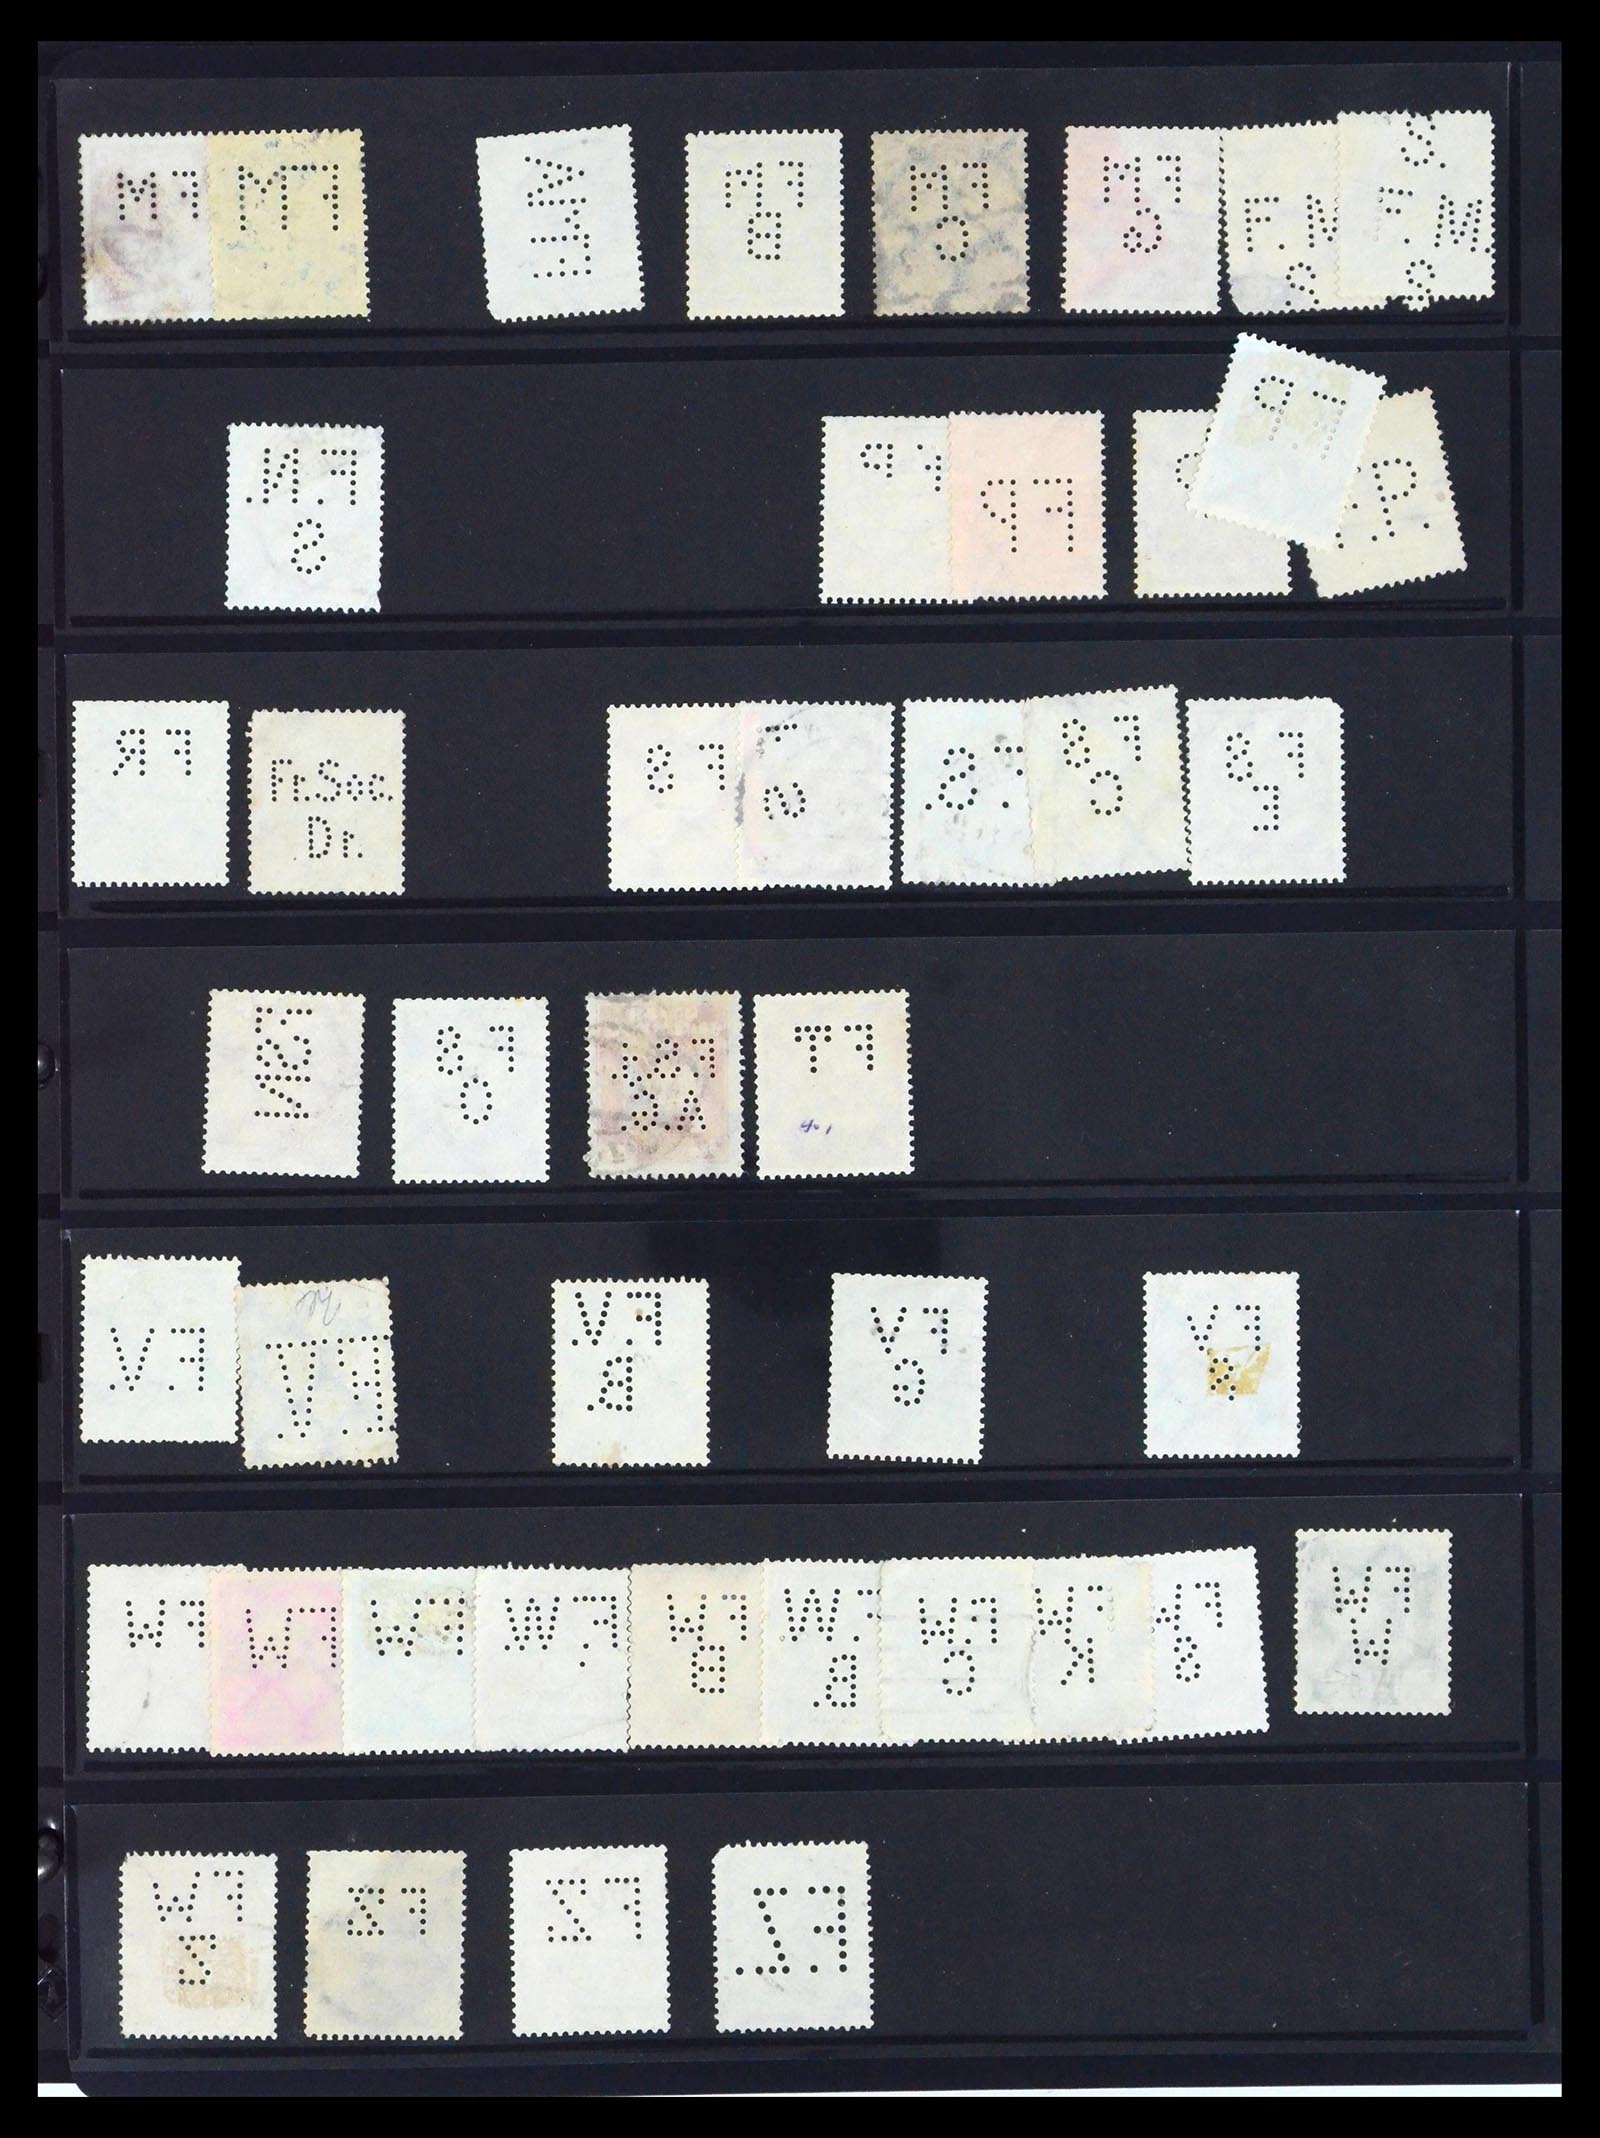 FM
FM
FM
B
FM
C
FM
G
S.
F.M.
S
F.N.
S
FP
FP
F.P
.P.
FR
Fr.Soc.
Dr.
FS
F.S.
FS
C
FS
E
FS
O
FT
F.V.
F.V
F.V.
R.
FV
G
FV
FW
FW
FW
F.W
FW
B
F.W
R.
FW
C
FW
K
FW
S
FW
W
FW
Z
FZ
FZ
F.Z.